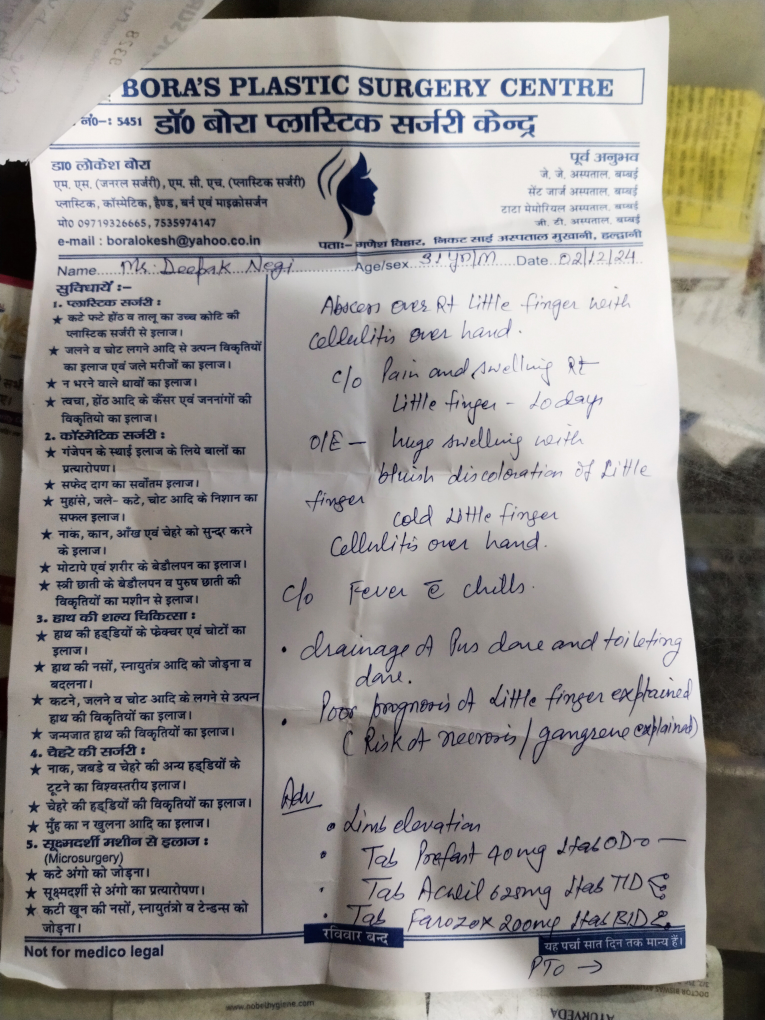 BORA'S PLASTIC SURGERY CENTRE
नं0–: 5451 डॉ0 बोरा प्लास्टिक सर्जरी केन्द्र
डा0 लोकेश बोरा
एम. एस. (जनरल सर्जरी), एम. सी. एच. (प्लास्टिक सर्जरी)
प्लास्टिक, कॉस्मेटिक, हैण्ड, बर्न एवं माइक्रोसर्जन
मो0 09719326665, 7535974147
e-mail : boralokesh@yahoo.co.in
पूर्व अनुभव
जे. जे. अस्पताल, बम्बई
सेंट जार्ज अस्पताल, बम्बई
टाटा मेमोरियल अस्पताल, बम्बई
जी. टी. अस्पताल, बम्बई
पताः– गणेश विहार, निकट साई अस्पताल मुखानी, हल्द्वानी
Name Mr. Deepak Negi Age/sex 31 yr/M Date 02/12/24
सुविधायें :–
1. प्लास्टिक सर्जरी :
★ कटे फटे होंठ व तालू का उच्च कोटि की
प्लास्टिक सर्जरी से इलाज।
★ जलने व चोट लगने आदि से उत्पन्न विकृतियों
का इलाज एवं जले मरीजों का इलाज।
★ न भरने वाले घावों का इलाज।
★ त्वचा, होंठ आदि के कैंसर एवं जननांगों की
विकृतियो का इलाज।
2. कॉस्मेटिक सर्जरी :
★ गंजेपन के स्थाई इलाज के लिये बालों का
प्रत्यारोपण।
★ सफेद दाग का सर्वोतम इलाज।
★ मुहांसे, जले- कटे, चोट आदि के निशान का
सफल इलाज।
★ नाक, कान, आँख एवं चेहरे को सुन्दर करने
के इलाज।
★ मोटापे एवं शरीर के बेडौलपन का इलाज।
★ स्त्री छाती के बेडौलपन व पुरुष छाती की
विकृतियों का मशीन से इलाज।
3. हाथ की शल्य चिकित्सा :
★ हाथ की हड्डियों के फ्रेक्चर एवं चोटों का
इलाज।
★ हाथ की नसों, स्नायुतंत्र आदि को जोड़ना व
बदलना।
★ कटने, जलने व चोट आदि के लगने से उत्पन्न
हाथ की विकृतियों का इलाज।
★ जन्मजात हाथ की विकृतियों का इलाज।
4. चेहरे की सर्जरी :
★ नाक, जबडे व चेहरे की अन्य हड्डियों के
टूटने का विश्वस्तरीय इलाज।
★ चेहरे की हड्डियों की विकृतियों का इलाज।
★ मुँह का न खुलना आदि का इलाज।
5. सूक्ष्मदर्शी मशीन से इलाज :
(Microsurgery)
★ कटे अंगो को जोड़ना।
★ सूक्ष्मदर्शी से अंगो का प्रत्यारोपण।
★ कटी खून की नसों, स्नायुतंत्रो व टेन्डन्स को
जोड़ना।
Abscess over Rt Little finger with
cellulitis over hand.
c/o Pain and swelling Rt
Little finger – 10 days
O/E – huge swelling with
bluish discoloration of Little
finger
cold Little finger
Cellulitis over hand.
c/o Fever c̄ chills.
• drainage of Pus done and toileting
done.
• Poor prognosis of Little finger explained
( Risk of necrosis / gangrene explained)
Adv
• Limb elevation
• Tab 40mg 1tab OD
• Tab 625mg 1tab TID
• Tab Farozox 200mg 1tab BID
रविवार बन्द
यह पर्चा सात दिन तक मान्य हैं।
Not for medico legal
PTO →
www.nobelhygiene.com
AYURVEDA